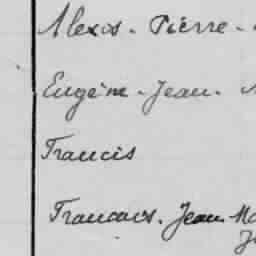 Alexis - Pierre -
Eugène - Jean -
Francis
Francois - Jean Ma